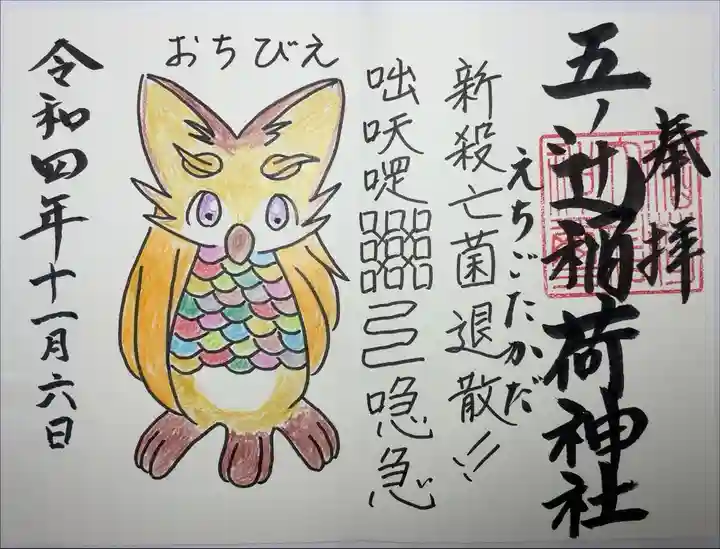 奉拝
五ノ辻稲荷神社
えちごたかだ
新殺亡菌退散!!
咄吠㖡
唸急
おちびえ
令和四年十一月六日